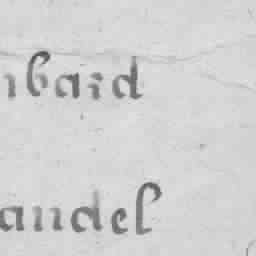 nbard
andel